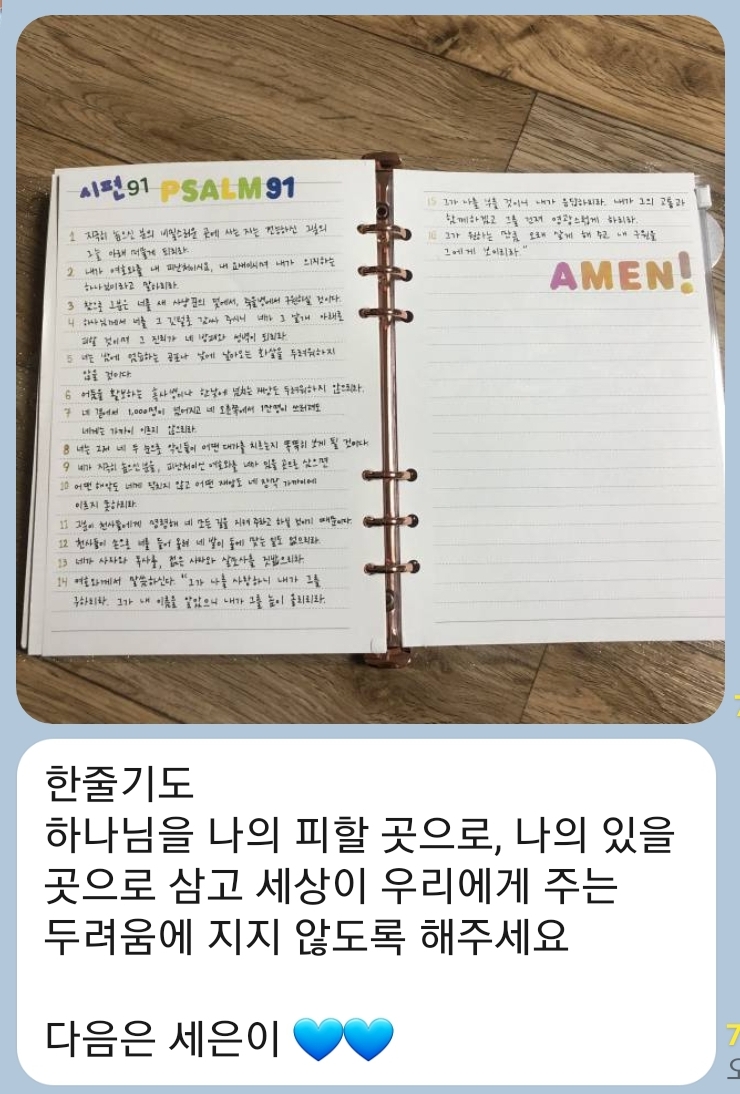 시편91 PSALM91
1 지극히 높으신 분의 비밀스러운 곳에 사는 자는 전능하신 그분의
그늘 아래 머물게 되리라.
2 내가 여호와를 내 피난처이시요, 내 요새이시며 내가 의지하는
하나님이라고 말하리라.
3 참으로 그분은 너를 새 사냥꾼의 덫에서, 죽을병에서 구원하실 것이다.
4 하나님께서 너를 그 깃털로 감싸 주시니 네가 그 날개 아래로
피할 것이며 그 진리가 네 방패와 성벽이 되리라.
5 너는 밤에 엄습하는 공포나 낮에 날아오는 화살을 두려워하지
않을 것이다.
6 어둠을 활보하는 흑사병이나 한낮에 넘치는 재앙도 두려워하지 않으리라.
7 네 곁에서 1,000명이 넘어지고 네 오른쪽에서 1만명이 쓰러져도
네게는 가까이 이르지 않으리라.
8 너는 그저 네 두 눈으로 악인들이 어떤 대가를 치르는지 똑똑히 보게 될 것이다.
9 네가 지극히 높으신 분을, 피난처이신 여호와를 네가 있을 곳으로 삼으면
10 어떤 해악도 네게 닥치지 않고 어떤 재앙도 네 장막 가까이에
이르지 못하리라.
11 그분이 천사들에게 명령해 네 모든 길을 지켜 주라고 하실 것이기 때문이다.
12 천사들이 손으로 너를 들어 올려 네 발이 돌에 맞는 일도 없으리라.
13 네가 사자와 독사를, 젊은 사자와 살모사를 짓밟으리라.
14 여호와께서 말씀하신다. "그가 나를 사랑하니 내가 그를
구하리라. 그가 내 이름을 알았으니 내가 그를 높이 올리리라.
15 그가 나를 부를 것이니 내가 응답하리라. 내가 그의 고통과
함께하겠고 그를 건져 영광스럽게 하리라.
16 그가 원하는 만큼 오래 살게 해 주고 내 구원을
그에게 보이리라."
AMEN!
한줄기도
하나님을 나의 피할 곳으로, 나의 있을
곳으로 삼고 세상이 우리에게 주는
두려움에 지지 않도록 해주세요
다음은 세은이 💙💙